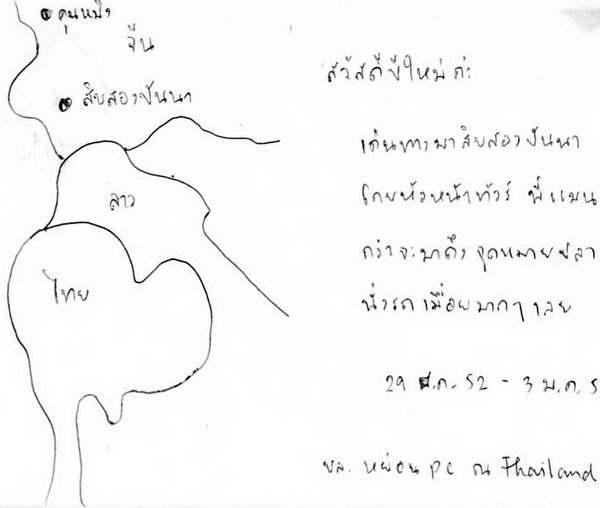 คุนหมิง
จีน
สิบสองปันนา
ลาว
ไทย
สวัสดีปีใหม่ค่ะ
เดินทางมาสิบสองปันนา
โดยหัวหน้าทัวร์ พี่แมน
กว่าจะมาถึง จุดหมายปลา
นั่งรถเมื่อยมากๆ เลย
29 ธ.ค. 52 - 3 ม.ค. 5
ปล. หย่อน pc ณ Thailand